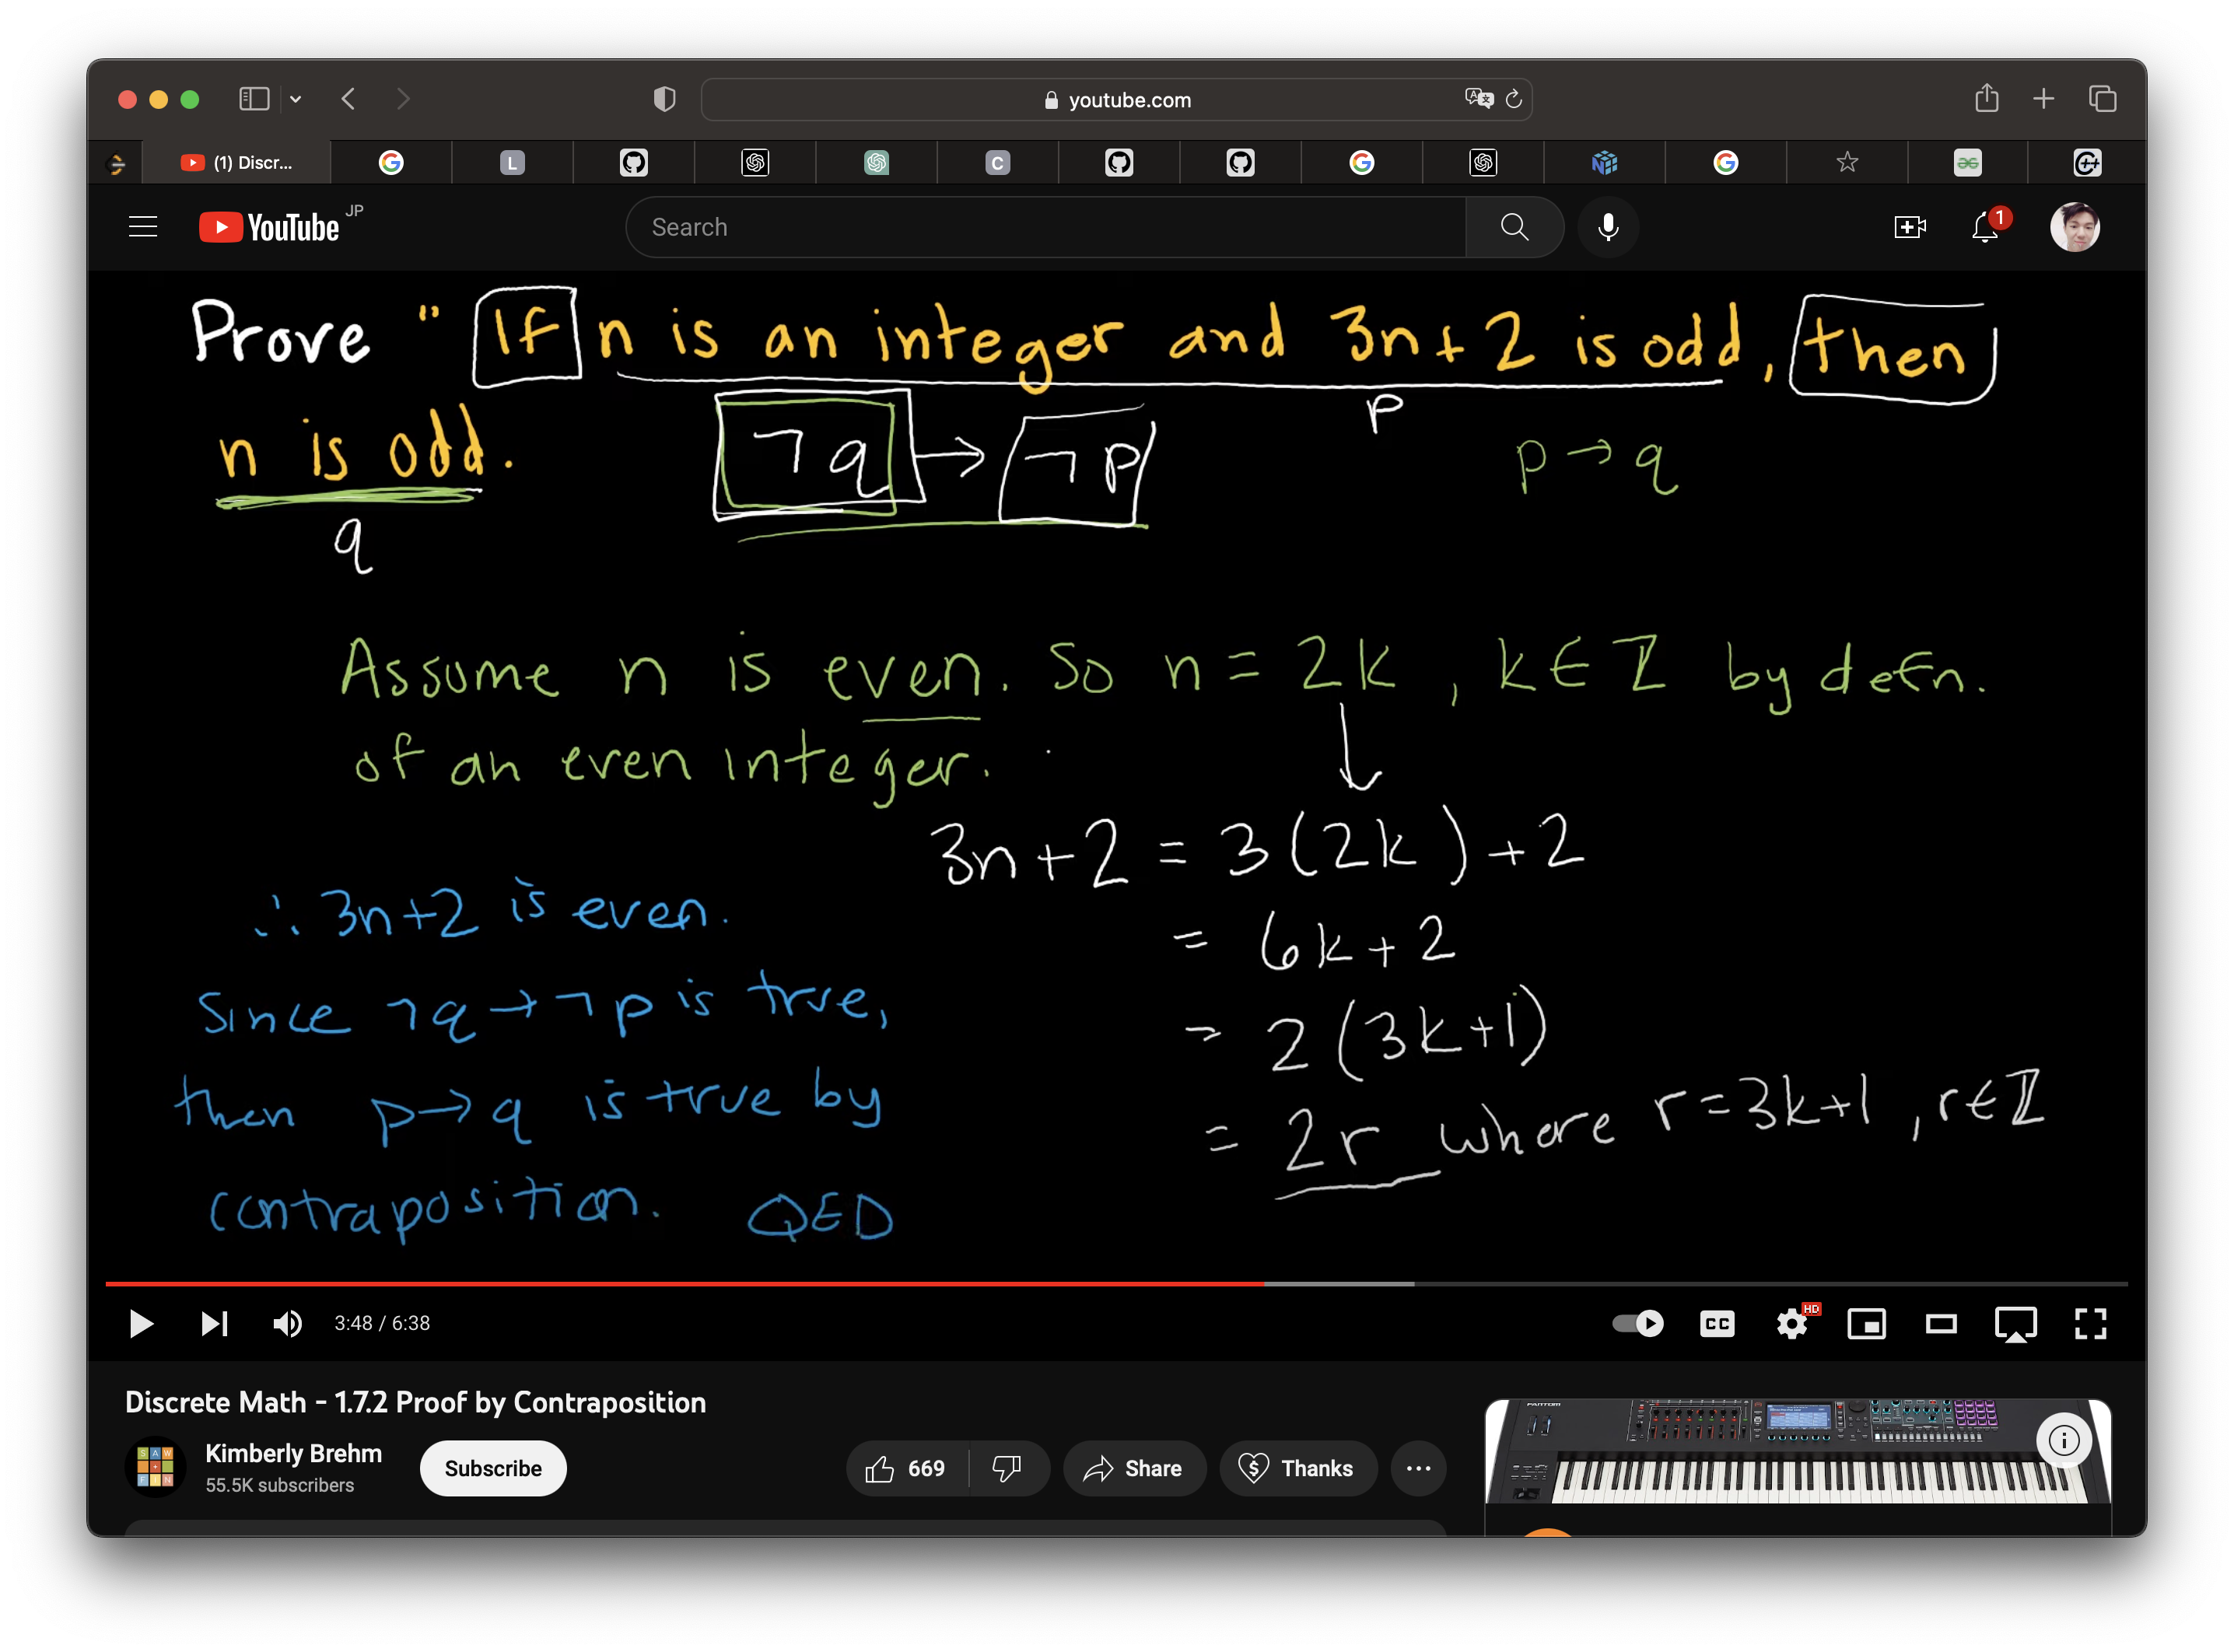 youtube.com
(1) Discr...
L
C
YouTube JP
Search
1
Prove " If n is an integer and 3n+2 is odd, then
p
n is odd.
¬q → ¬p
p → q
q
Assume n is even. So n = 2k, k ∈ ℤ by defn.
of an even integer.
3n+2 = 3(2k)+2
= 6k+2
= 2(3k+1)
= 2r where r=3k+1, r∈ℤ
∴ 3n+2 is even.
Since ¬q→¬p is true,
then p→q is true by
contraposition. QED
3:48 / 6:38
CC
HD
Discrete Math - 1.7.2 Proof by Contraposition
Kimberly Brehm
55.5K subscribers
Subscribe
669
Share
Thanks